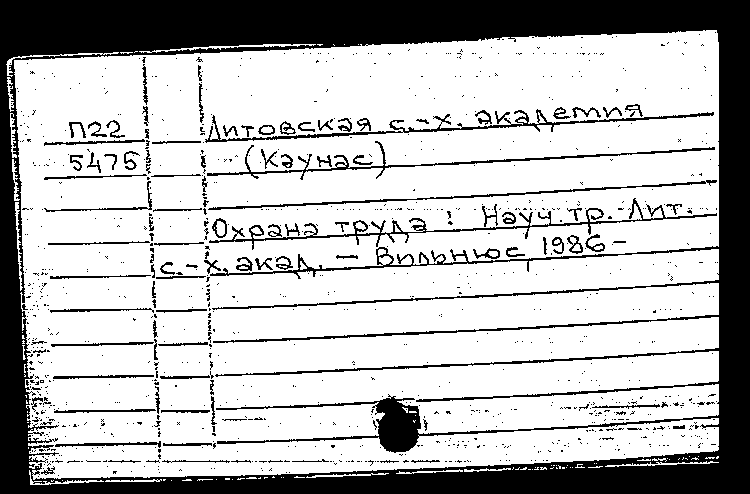 П22 Литовская с.-х. академия
5475 (Каунас)
Охрана труда : Науч. тр.-Лит.
с.-х. акад. — Вильнюс, 1986-